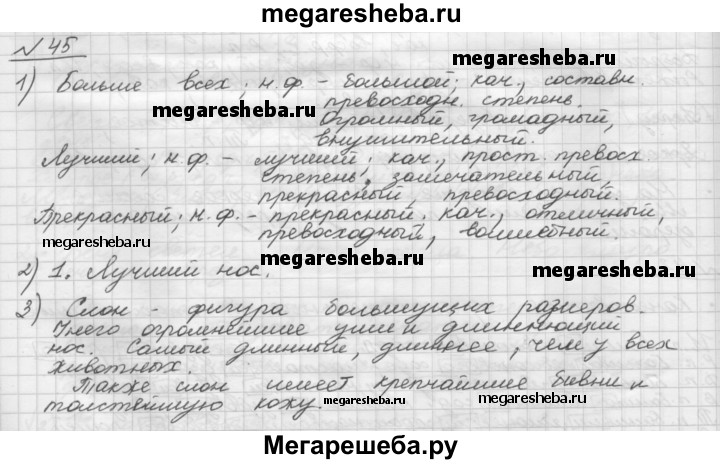 megaresheba.ru
№ 45
1) Больше всех; н.ф. - большой; кач., составн.
megaresheba.ru
превосходн. степень.
megaresheba.ru
Огромный, громадный,
внушительный.
Лучший; н.ф. - лучший; кач., прост. превосх.
степень, замечательный,
прекрасный, превосходный.
Прекрасный; н.ф. - прекрасный. кач., отличный,
megaresheba.ru
превосходный, волшебный.
2) 1. Лучший нос.
megaresheba.ru
megaresheba.ru
3) Слон - фигура большущих размеров.
У него огромнейшее уши и длиннющий
нос. Самый длинный, длиннее, чем у всех
животных.
Также слон имеет крепчайшие бивни и
толстейшую кожу.
megaresheba.ru
megaresheba.ru
Мегарешеба.ру